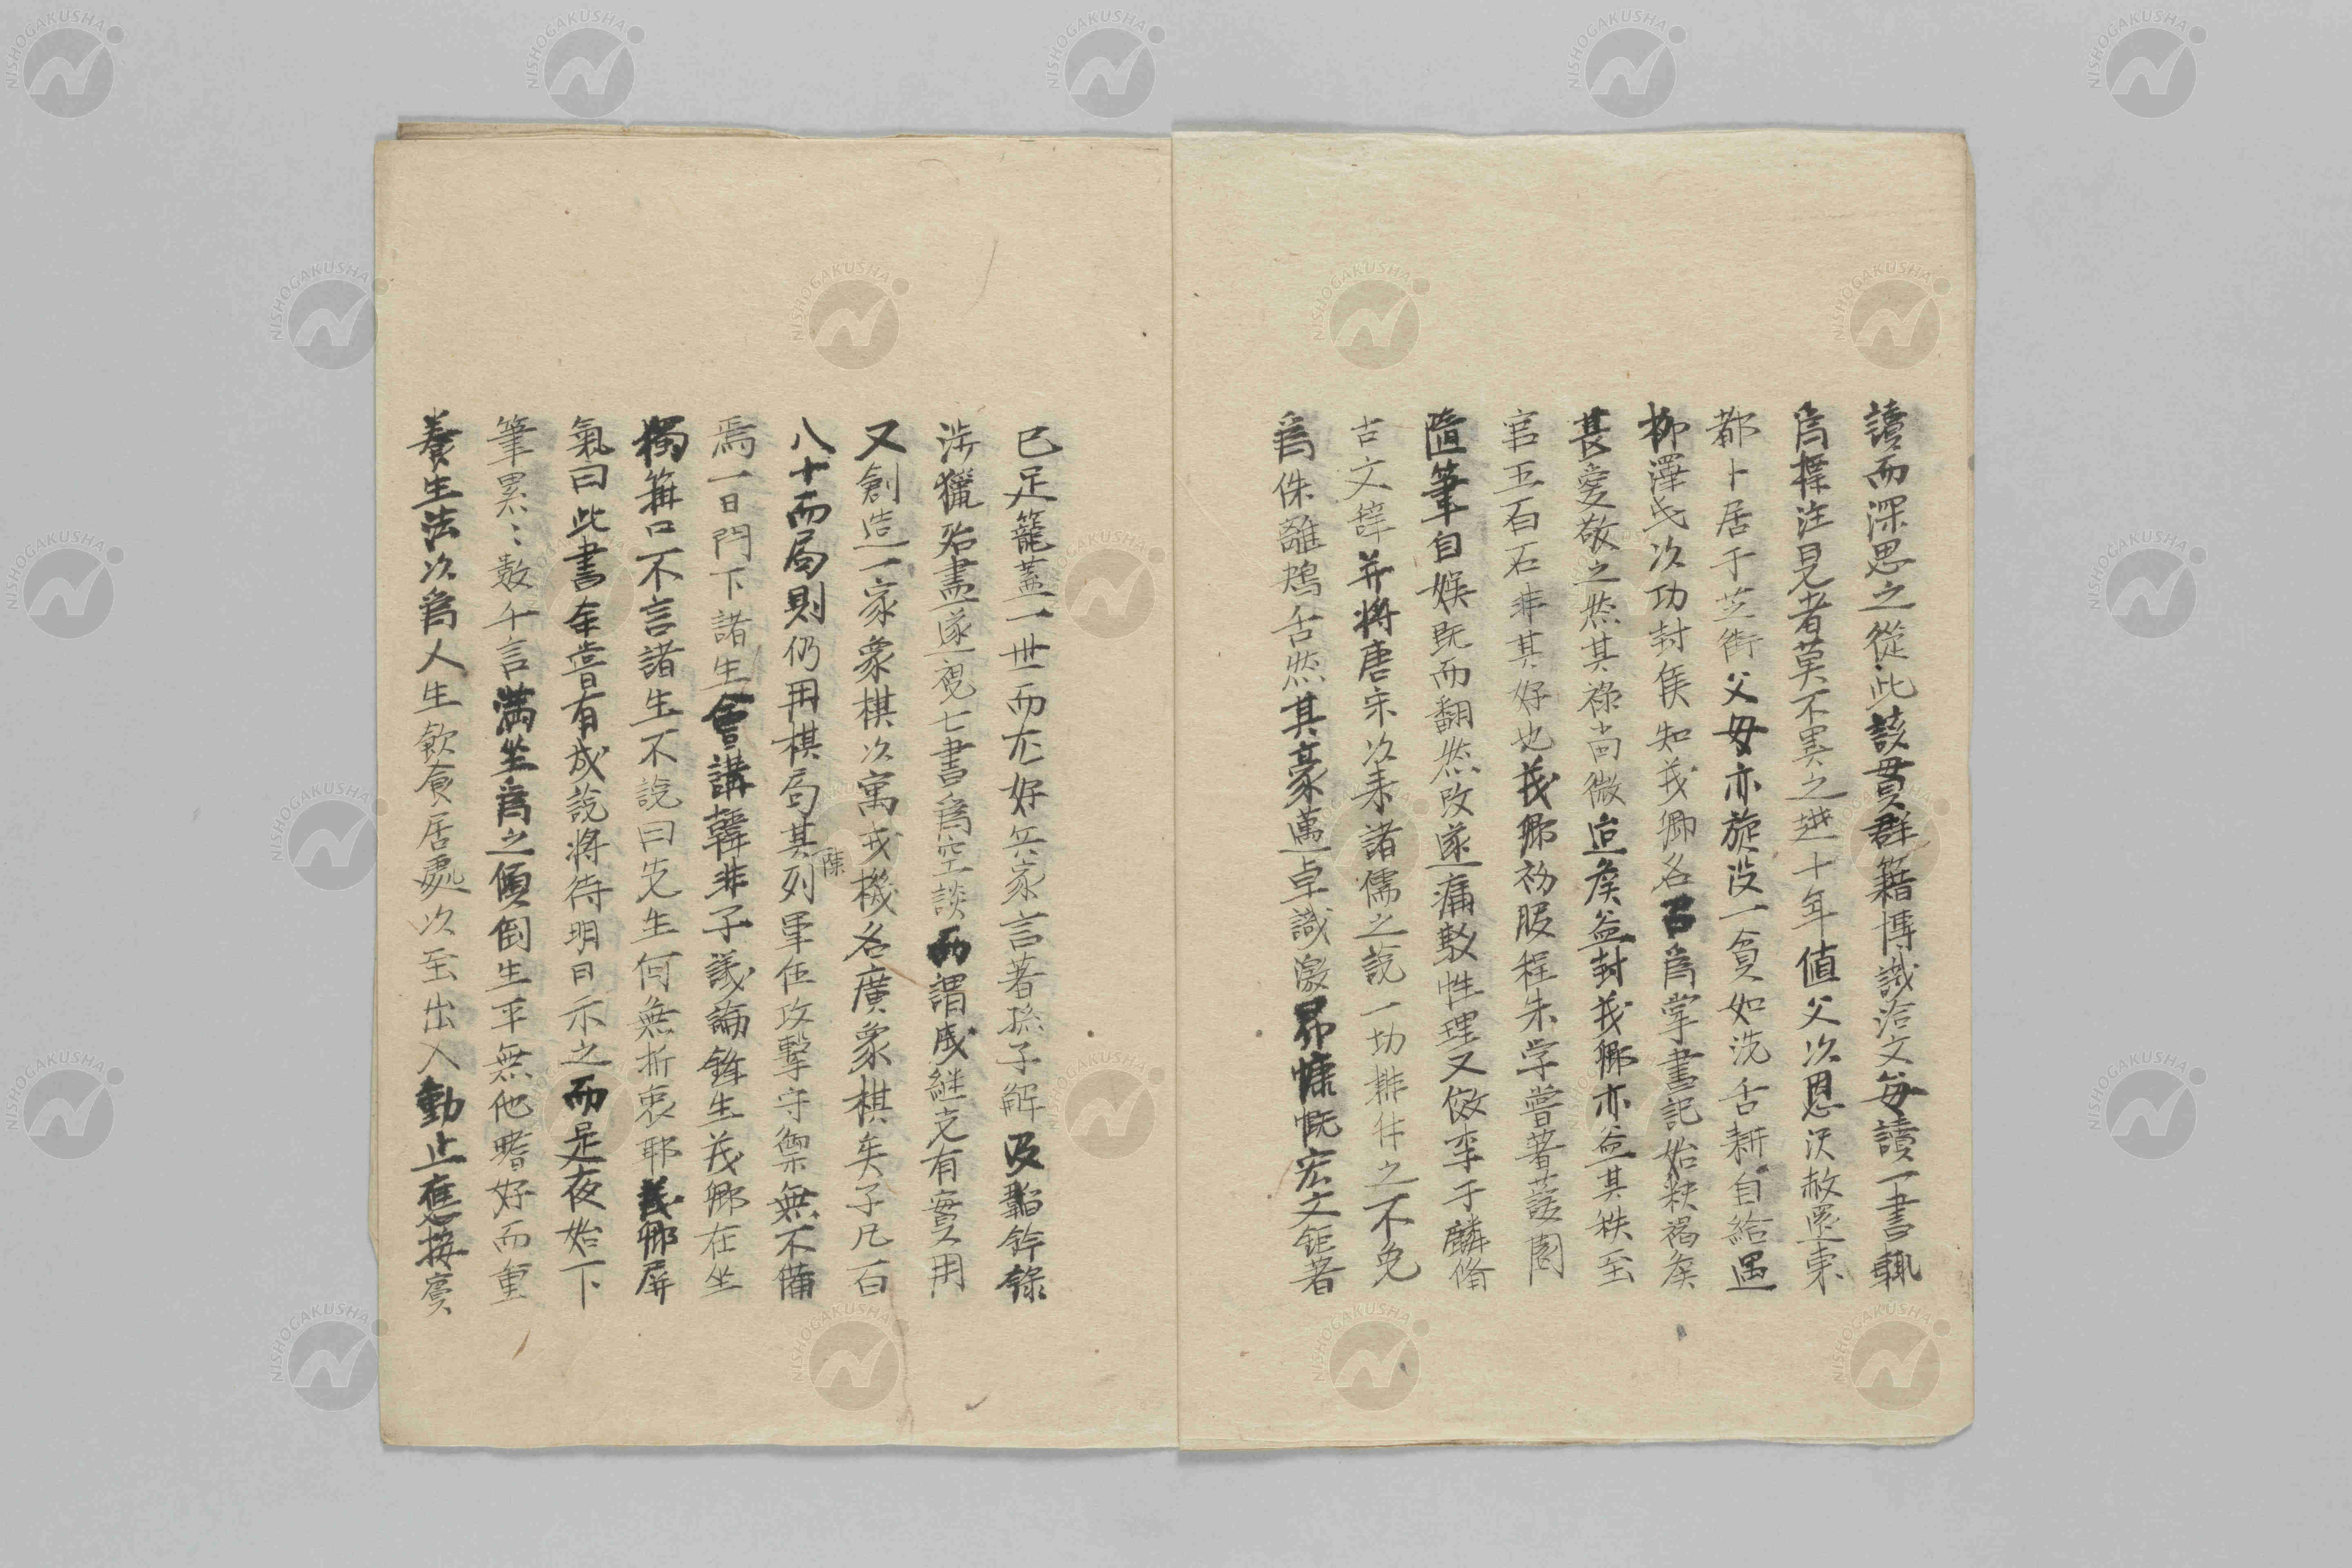 讀而深思之從此該貫群籍博識洽文每讀一書輒
爲標注見者莫不異之越十年值父以恩沢赦還東
都卜居于芝街父母亦旋没一貧如洗舌耕自給遇
柳澤氏以功封侯知茂卿名召爲掌書記始秩褐侯
甚愛敬之然其祿尚微迨侯益封茂卿亦益其秩至
官五百石非其好也茂卿初服程朱学嘗著蘐園
隨筆自娯既而翻然改遂痛駁性理又倣李于麟脩
古文辞并將唐宋以来諸儒之説一切排住之不免
爲侏離鴂舌然其豪邁卓識激昂慷慨宏文鉅著
已足籠蓋一世而尤好兵家言著孫子解及黠鈐録
渉獵殆盡遂視七書爲空談而謂戚継光有實用
又創造一家象棋以寓戎機名廣象棋矣子凡百
八十而局則仍用棋局其列軍伍攻撃守禦無不備
陳
焉一日門下諸生會講韓非子議論鋒生茂卿在坐
獨箝口不言諸生不説曰先生何無折衷耶茂卿屏
氣曰此書余嘗有成説將待明日示之而是夜始下
筆累〻数千言満坐爲之傾倒生平無他嗜好而重
養生法以爲人生飲食居處以至出入動止應接賓